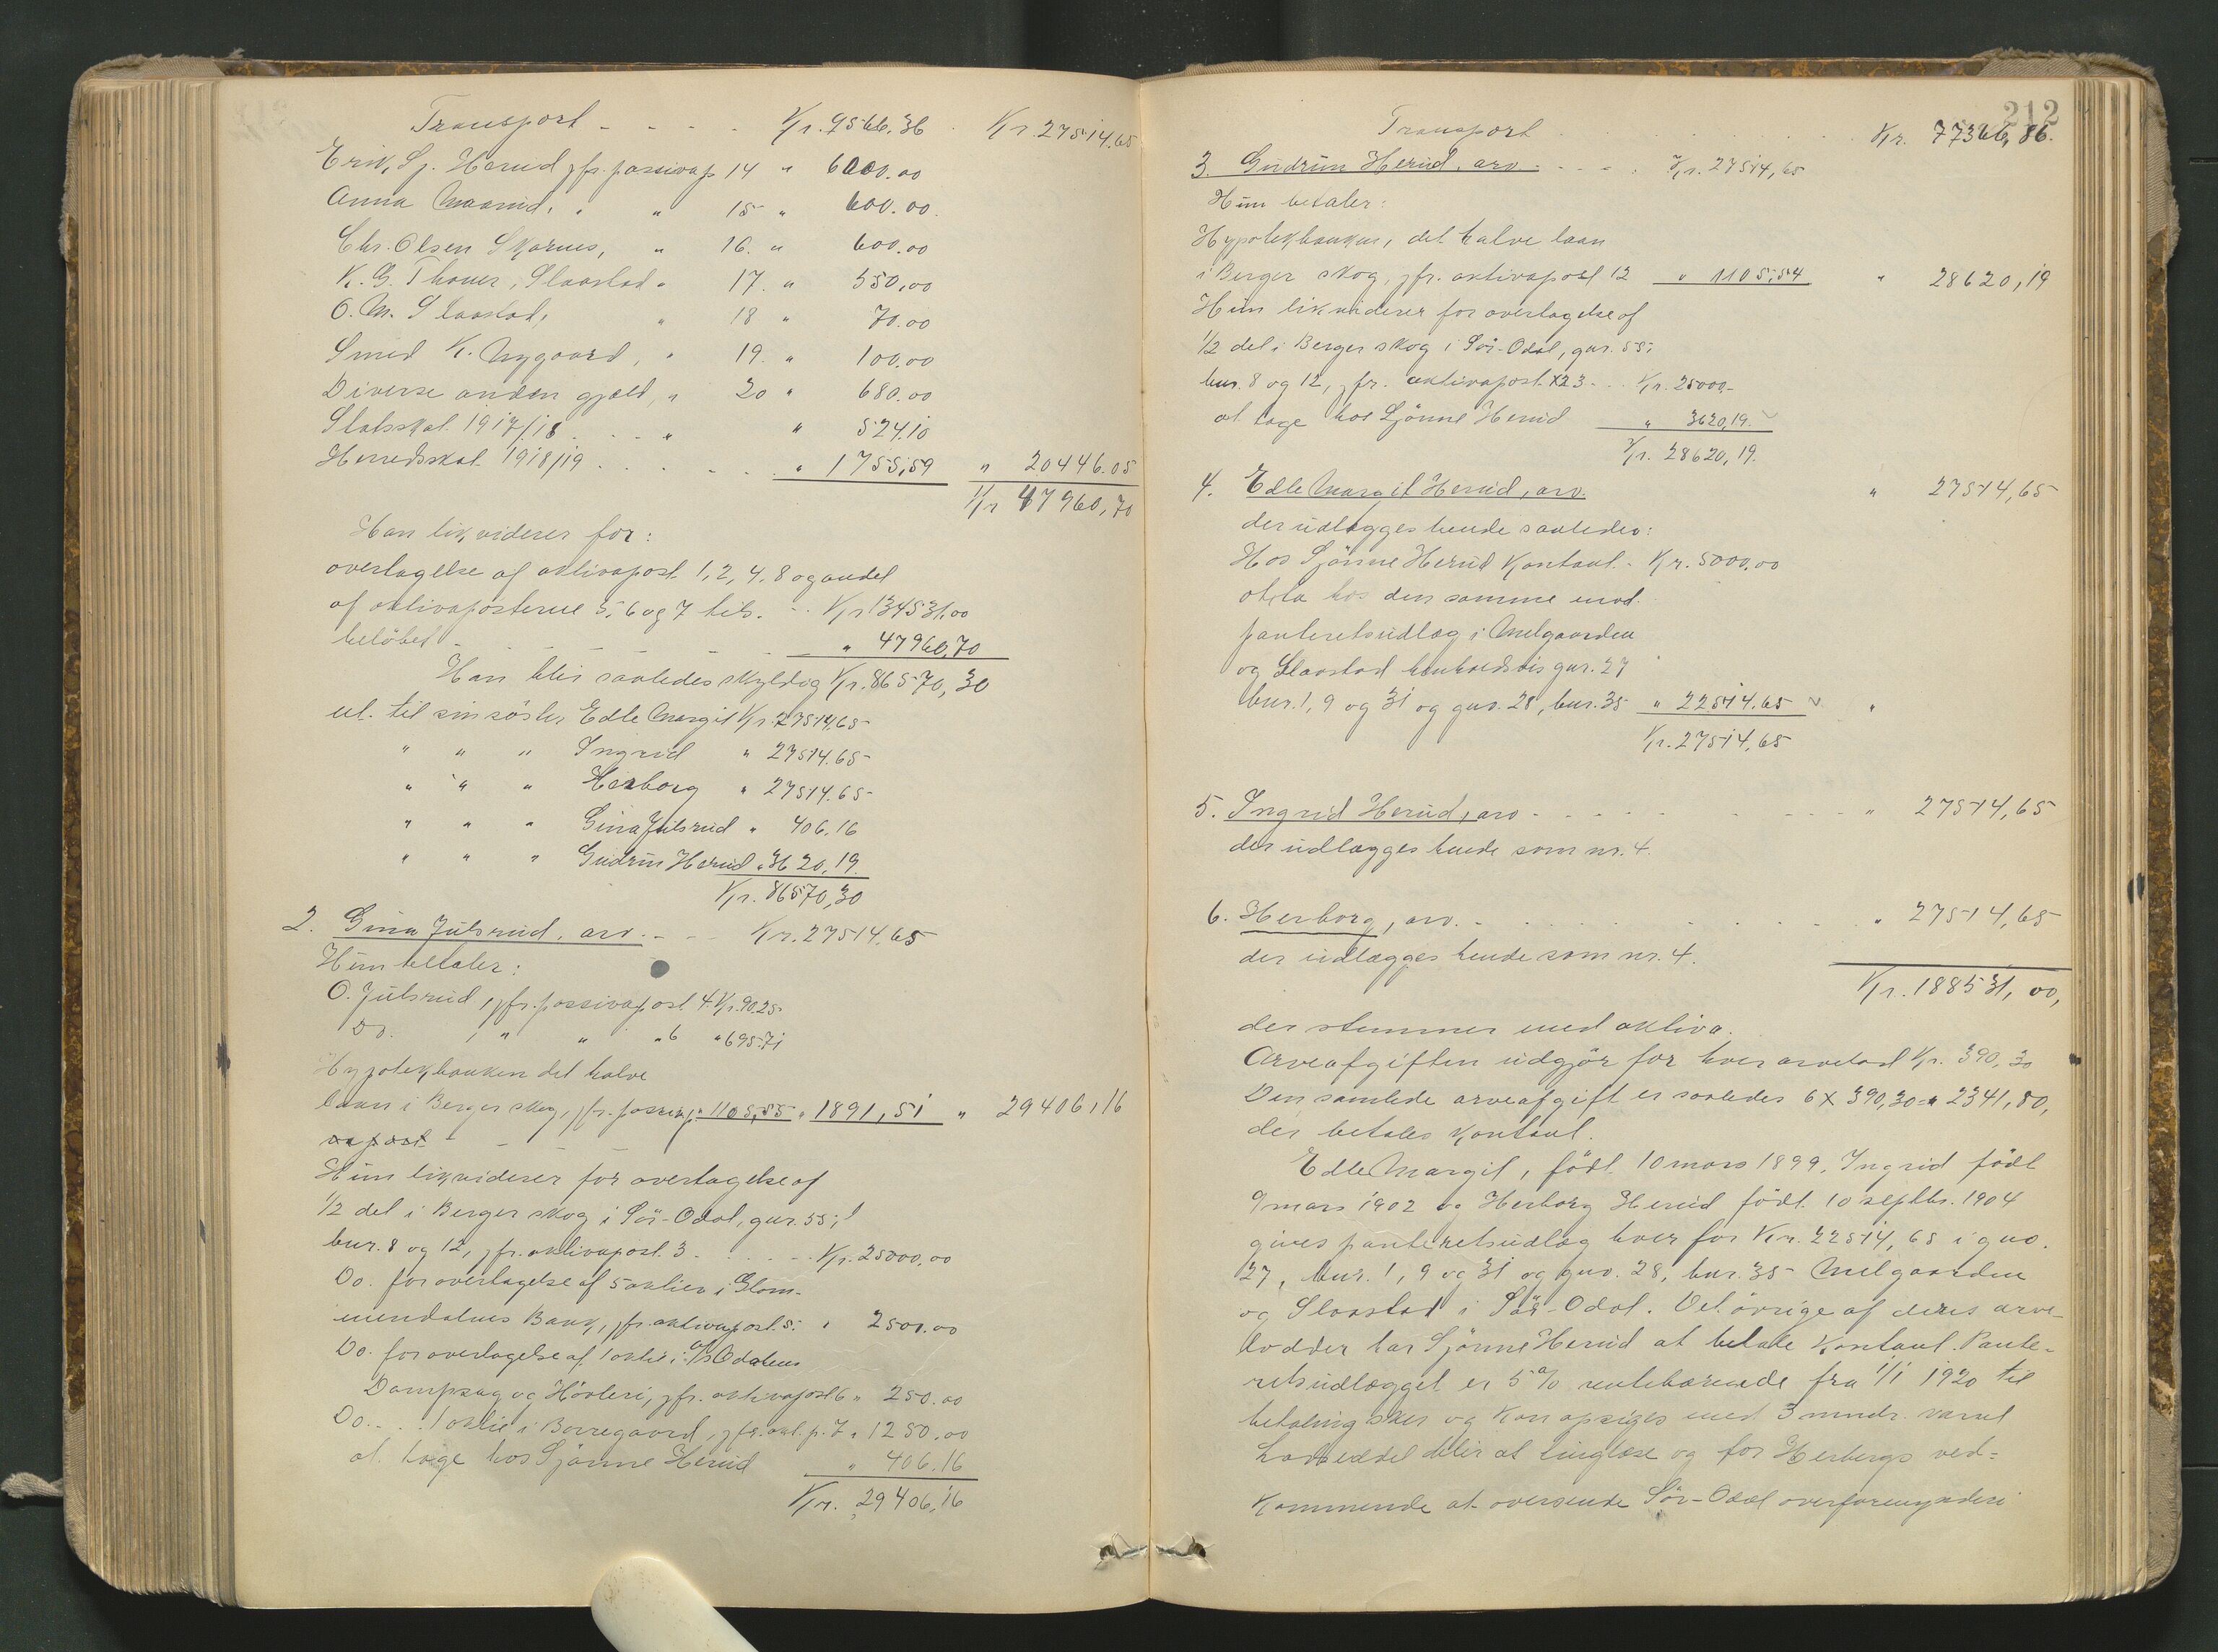 Transport - - - - Kr. 9566.36 Kr. 27514.65
Erik Sj. Herud jfr. passivap 14 " 6000.00
Anna Maarud, " " 15 " 600.00
Chr. Olsen Skarnes, " 16. " 600.00
K. G. Thoner, Slaastad " 17. " 550,00
O. M. Slaastad, " 18 " 70.00
Smed K. Nygaard, " 19. " 100.00
Diverse anden gjæld, " 20 " 680.00
Statsskat 1917/18 . . . " " 524.10
Herredsskat 1918/19 . . . . . . " 1755,59 " 20446.05
Kr 47960,70
Han likviderer for:
overtagelse af aktivapost 1, 2, 4, 8 og andel
af aktivaposterne 5, 6 og 7 tils. - - Kr 134531.00
beløbet - - - - - " 47960.70
Han blir saaledes skyldig Kr. 86570,30
ut. til sin søster Edle Margit Kr. 27514,65
" " " Ingrid " 27514.65
" " " Herborg " 27514.65
" " " Gina Julsrud " 406,16
" " " Gudrun Herud " 3620,19.
Kr. 86570,30
2. Gina Julsrud, arv. - - Kr. 27514.65
Hun betaler:
O. Julsrud, jfr. passivapost 4 Kr. 90.25
Do. , " " " 6 " 695.71
Hypotekbanken det halve
laan i Berger skog, jfr. " 1105,55 " 1891,51 " 29406,16
Hun likviderer for overtagelse af
1/2 del i Berger skog i Sør-Odal, gnr. 55,
bnr. 8 og 12, jfr. aktivapost 3 . . . . . Kr. 25000,00
Do. for overtagelse af 5 aktier i Glom-
mendalens Bank, jfr. aktivapost 5. " 2500.00
Do. for overtagelse af 1 aktie i A/S Odalens
Dampsag og Høvleri, jfr. aktivapost 6 " 250.00
Do. . . 1 aktie i Borregaard, jfr. akt. p. 7 " 1250.00
at tage hos Sjønne Herud " 406.16
Kr. 29406,16
212
Transport . . . . . . Kr. 77366,86.
3. Gudrun Herud, arv. - - - . Kr. 27514,65
Hun betaler:
Hypotekbanken, det halve laan
i Berger skog, jfr. aktivapost 12 " 1105,54 " 28620,19
Hun likviderer for overtagelse af
1/2 del i Berger skog i Sør-Odal, gnr. 55,
bnr. 8 og 12, jfr. aktivapost 3 . . Kr. 25000.-
at tage hos Sjønne Herud " 3620,19.
Kr. 28620,19.
4. Edle Margit Herud, arv. " 27514,65
der udlægges hende saaledes:
Hos Sjønne Herud kontant - Kr. 5000.00
at ta hos den samme mod
panteretsudlæg i Melgaarden
og Slaastad henholdsvis gnr. 27
bnr. 1, 9 og 31 og gnr. 28, bnr. 35 " 22514.65 "
Kr. 27514,65
5. Ingrid Herud, arv - - - - - - - - " 27514,65
der udlægges hende som nr. 4.
6. Herborg, arv. - . . . . . . " 27514,65
der udlægges hende som nr. 4.
Kr. 188531,00,
der stemmer med aktiva.
Arveafgiften udgjør for hver arvelod Kr. 390,30
Den samlede arveafgift er saaledes 6 x 390,30 = " 2341,80,
der betales kontant.
Edle Margit, født 10 mars 1899, Ingrid født
9 mars 1902 og Herborg Herud født 10 septbr. 1904
gives panteretsudlæg hver for Kr. 22514,65 i gno.
27, bnr. 1, 9 og 31 og gno. 28, bnr. 35 Melgaarden
og Slaastad i Sør-Odal. Det øvrige af deres arve-
lodder har Sjønne Herud at betale kontant. Pante-
retsudlægget er 5 % rentebærende fra 1/1 1920 til
betaling sker og kan opsiges med 3 mndr. varsel
Lodseddel blir at tinglæse og for Herborgs ved-
kommende at oversende Sør-Odal overformynderi